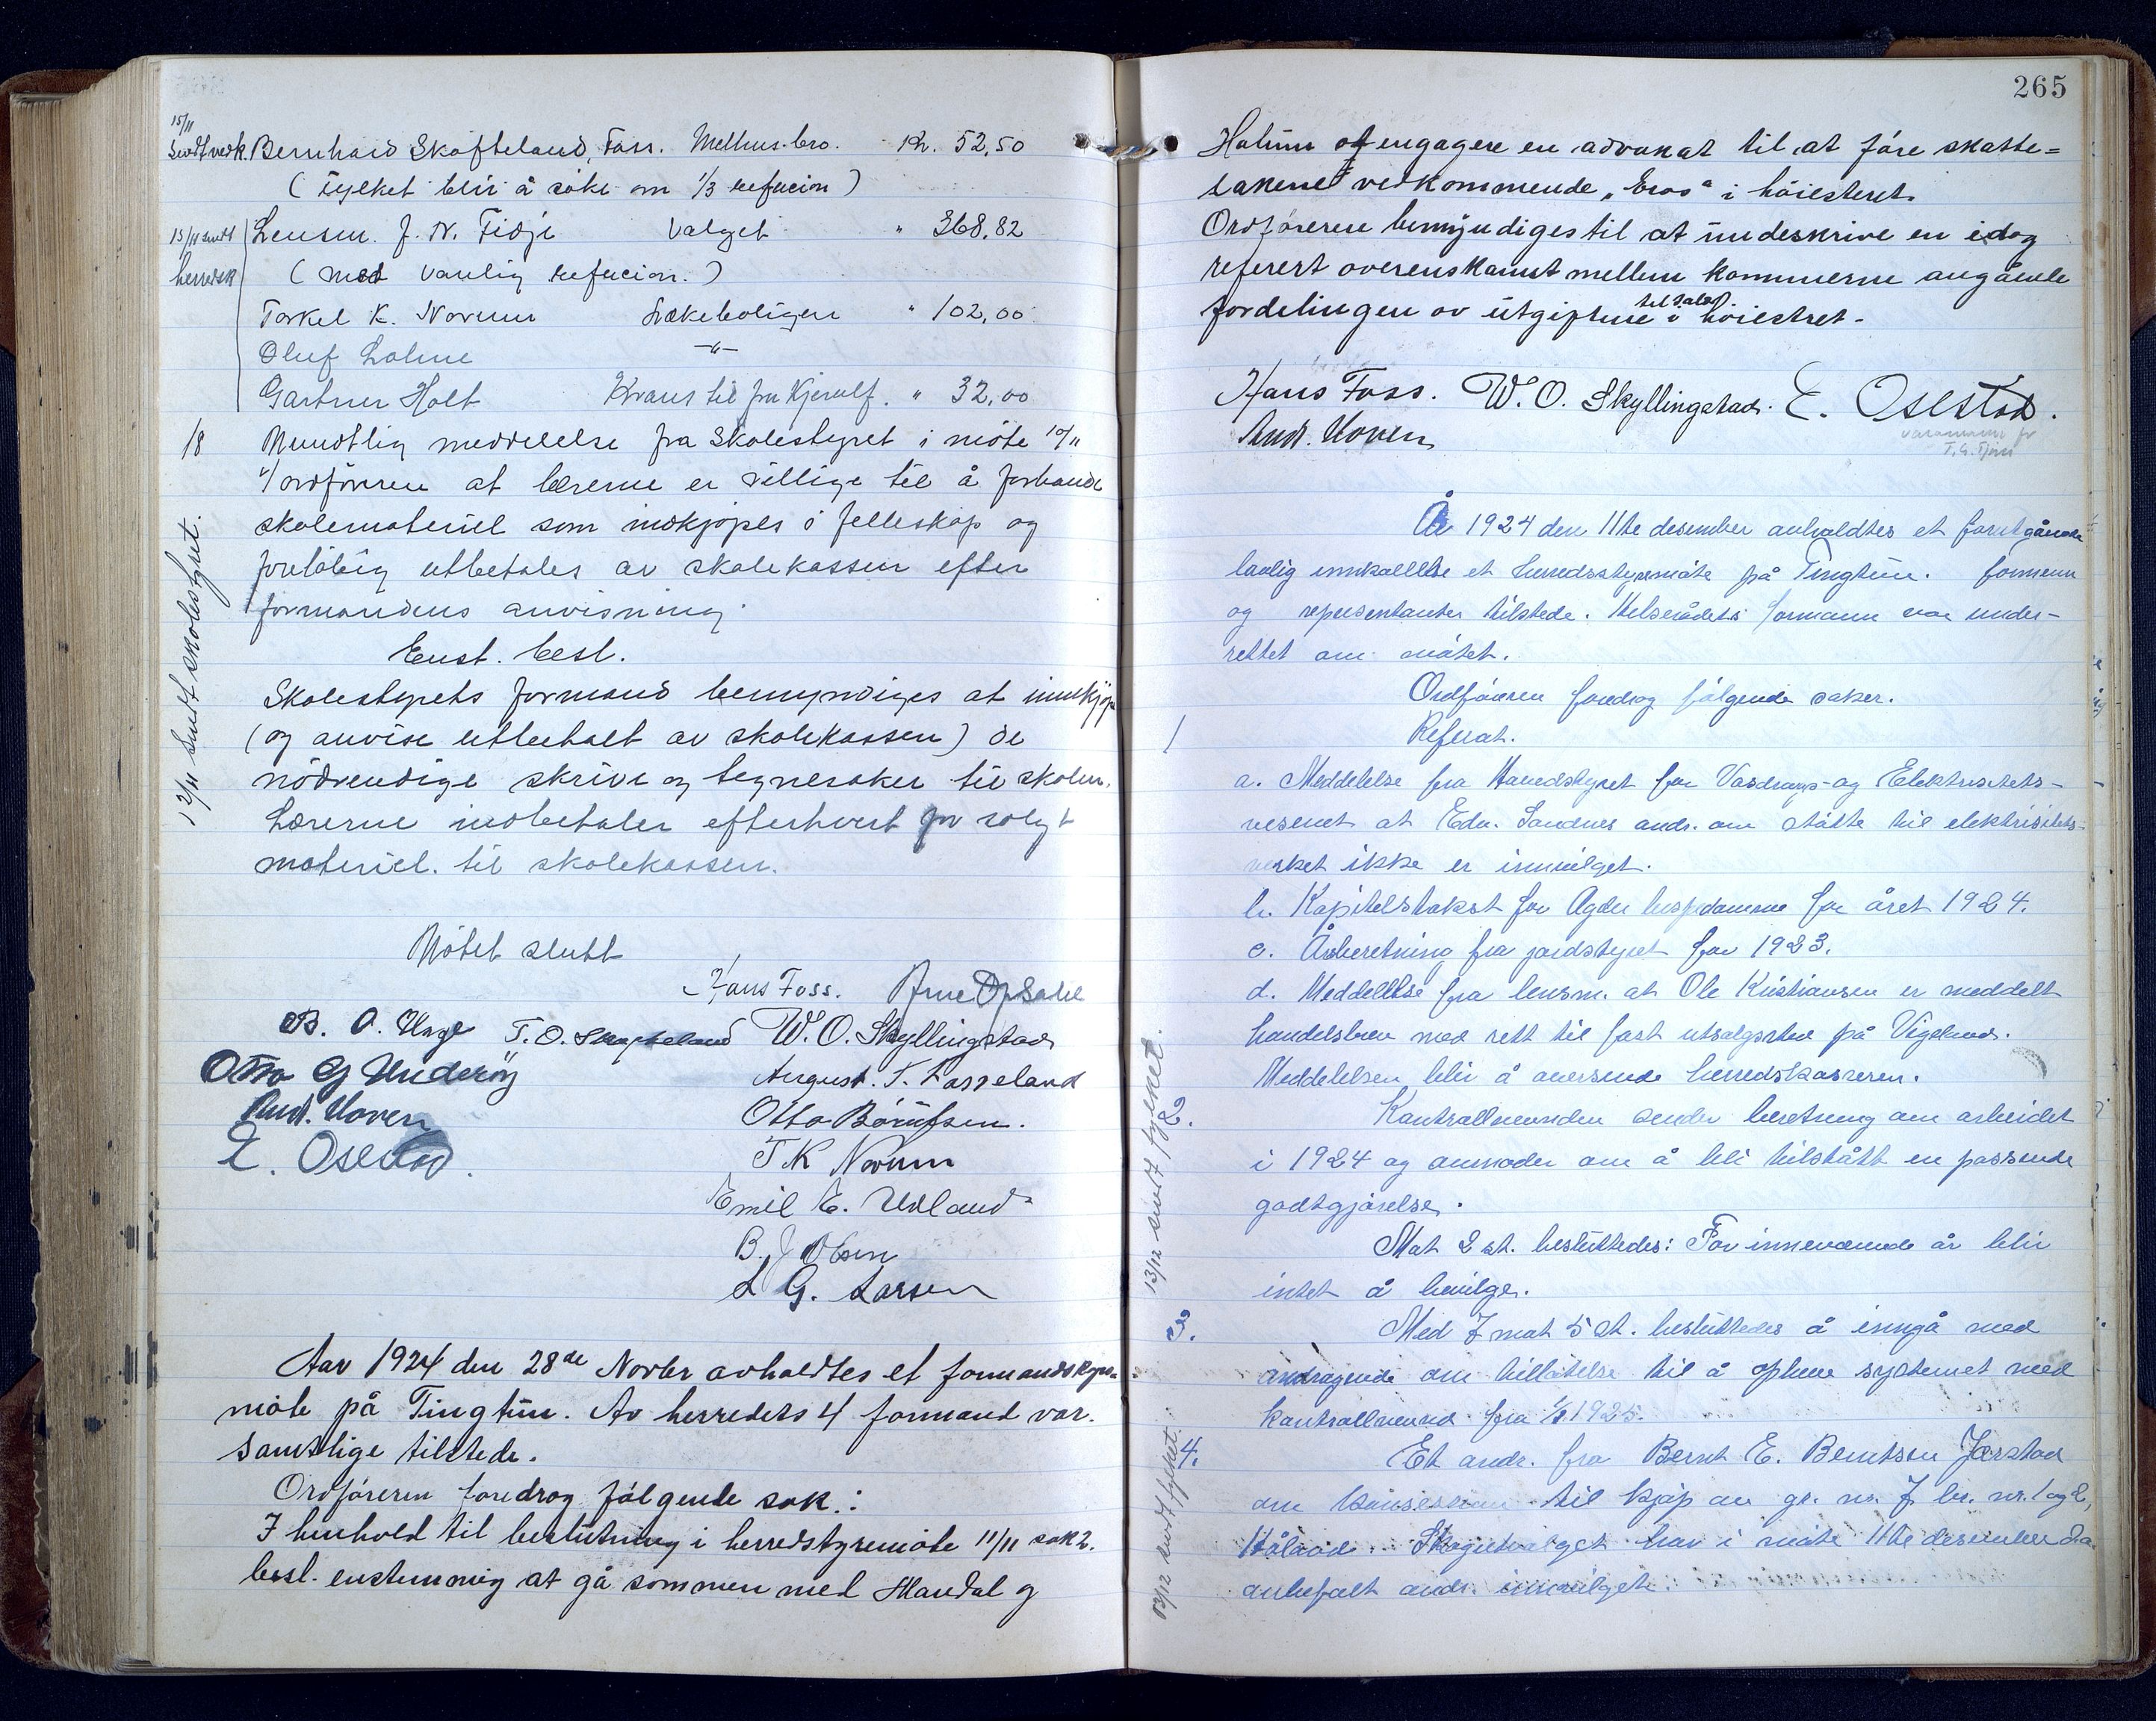 15/11
Sendt vedk. Bernhard Skofteland, Foss. Melhus-bro. Kr. 52,50
(Fylket blir å söke om 1/3 refucion)
15/11 sendt Lensm. J. N. Fidje Valget " 368,82
herredsk (med vanlig refucion.)
Torkel K. Norum Lækeboligen " 102,00
Oluf Lohne —"—
Gartner Holt Krans til fru Kjerulf. " 32,00
18 Mundtlig meddelelse fra Skolestyret i möte 10/11
v/ordföreren at lærerne er villige til å forhandle
skolemateriel som indkjöpes i felleskap og
forelöbig utbetales av skolekassen efter
formandens anvisning.
Enst. besl.
12/11 Sendt skolestyret.
Skolestyrets formand bemyndiges at innkjöpe
(og anvise utbetalt av skolekassen) de
nödvendige skrive og tegnesaker til skolen.
Lærerne indbetaler efterhvert for solgt
materiel. til skolekassen.
Mötet slutt
Hans Foss. Arne Opsahl
B. O. Unge T. O. Skofteland W. O. Skyllingstad
Otto G Underöy August. T. Fasseland
And. Hoven Otto Börufsen.
E. Osestad. T K Norum
Emil E. Udland
B. J Olsen
L G. Larsen
Aar 1924 den 28de Novbr avholdtes et formandskaps-
möte på Tingtun. Av herredets 4 formænd var
samtlige tilstede.
Ordföreren foredrog fölgende sak:
I henhold til beslutning i herredstyremöte 11/11 sak 2.
besl. enstemmig at gå sammen med Mandal g
265
Halum of engagere en advokat til at före skatte=
sakene vedkommende „Eros" i höiesteret.
Ordföreren bemyndiges til at underskrive en idag
referert overenskomst mellem kommunerne angående
fordelingen av utgiftene til sak i höiestret.
Hans Foss. W. O. Skyllingstad. E. Osestad.
And. Hoven
varamann for
T. G.
År 1924 den 11te desember avholdtes et forutgående
lovlig innkallelse et herredsstyremöte på Tingtun. formenn
og representanter tilstede. Helserådets formann var under-
rettet om mötet.
Ordföreren foredrog fölgende saker.
1 Referat.
a. Meddelelse fra Hovedstyret for Vasdrags- og Elektrisitets-
vesenet at Edv. Sandnes andr. om stötte til elektrisitets-
verket ikke er innvilget.
b. Kapitelstakst for Agder bispedömme for året 1924.
c. Årsberetning fra jordstyret for 1923.
d. Meddelelse fra lensm. at Ole Kristiansen er meddelt
handelsbrev med rett til fast utsalgssted på Vigeland.
Meddelelsen blir å oversende herredskasseren.
2. Kontrollnevnden sender beretning om arbeidet
i 1924 og anmoder om å bli tilstått en passende
godtgjörelse.
13/12 sendt fylket.
Mot 2 st. besluttedes: For inneværende år blir
intet å bevilge.
3. Med 7 mot 5 st. besluttedes å inngå med
andragende om tillatelse til å opheve systemet med
kontrollnevnd fra 1/1 1925.
4. Et andr. fra Bernt E. Berntsen Jærstad
om konsession til kjöp av gr. nr. 7 br. nr. 1 og 2,
13/12 sendt fylket.
Skogutvalget har i möte 11te desember d.a.
anbefalt andr. innvilget.